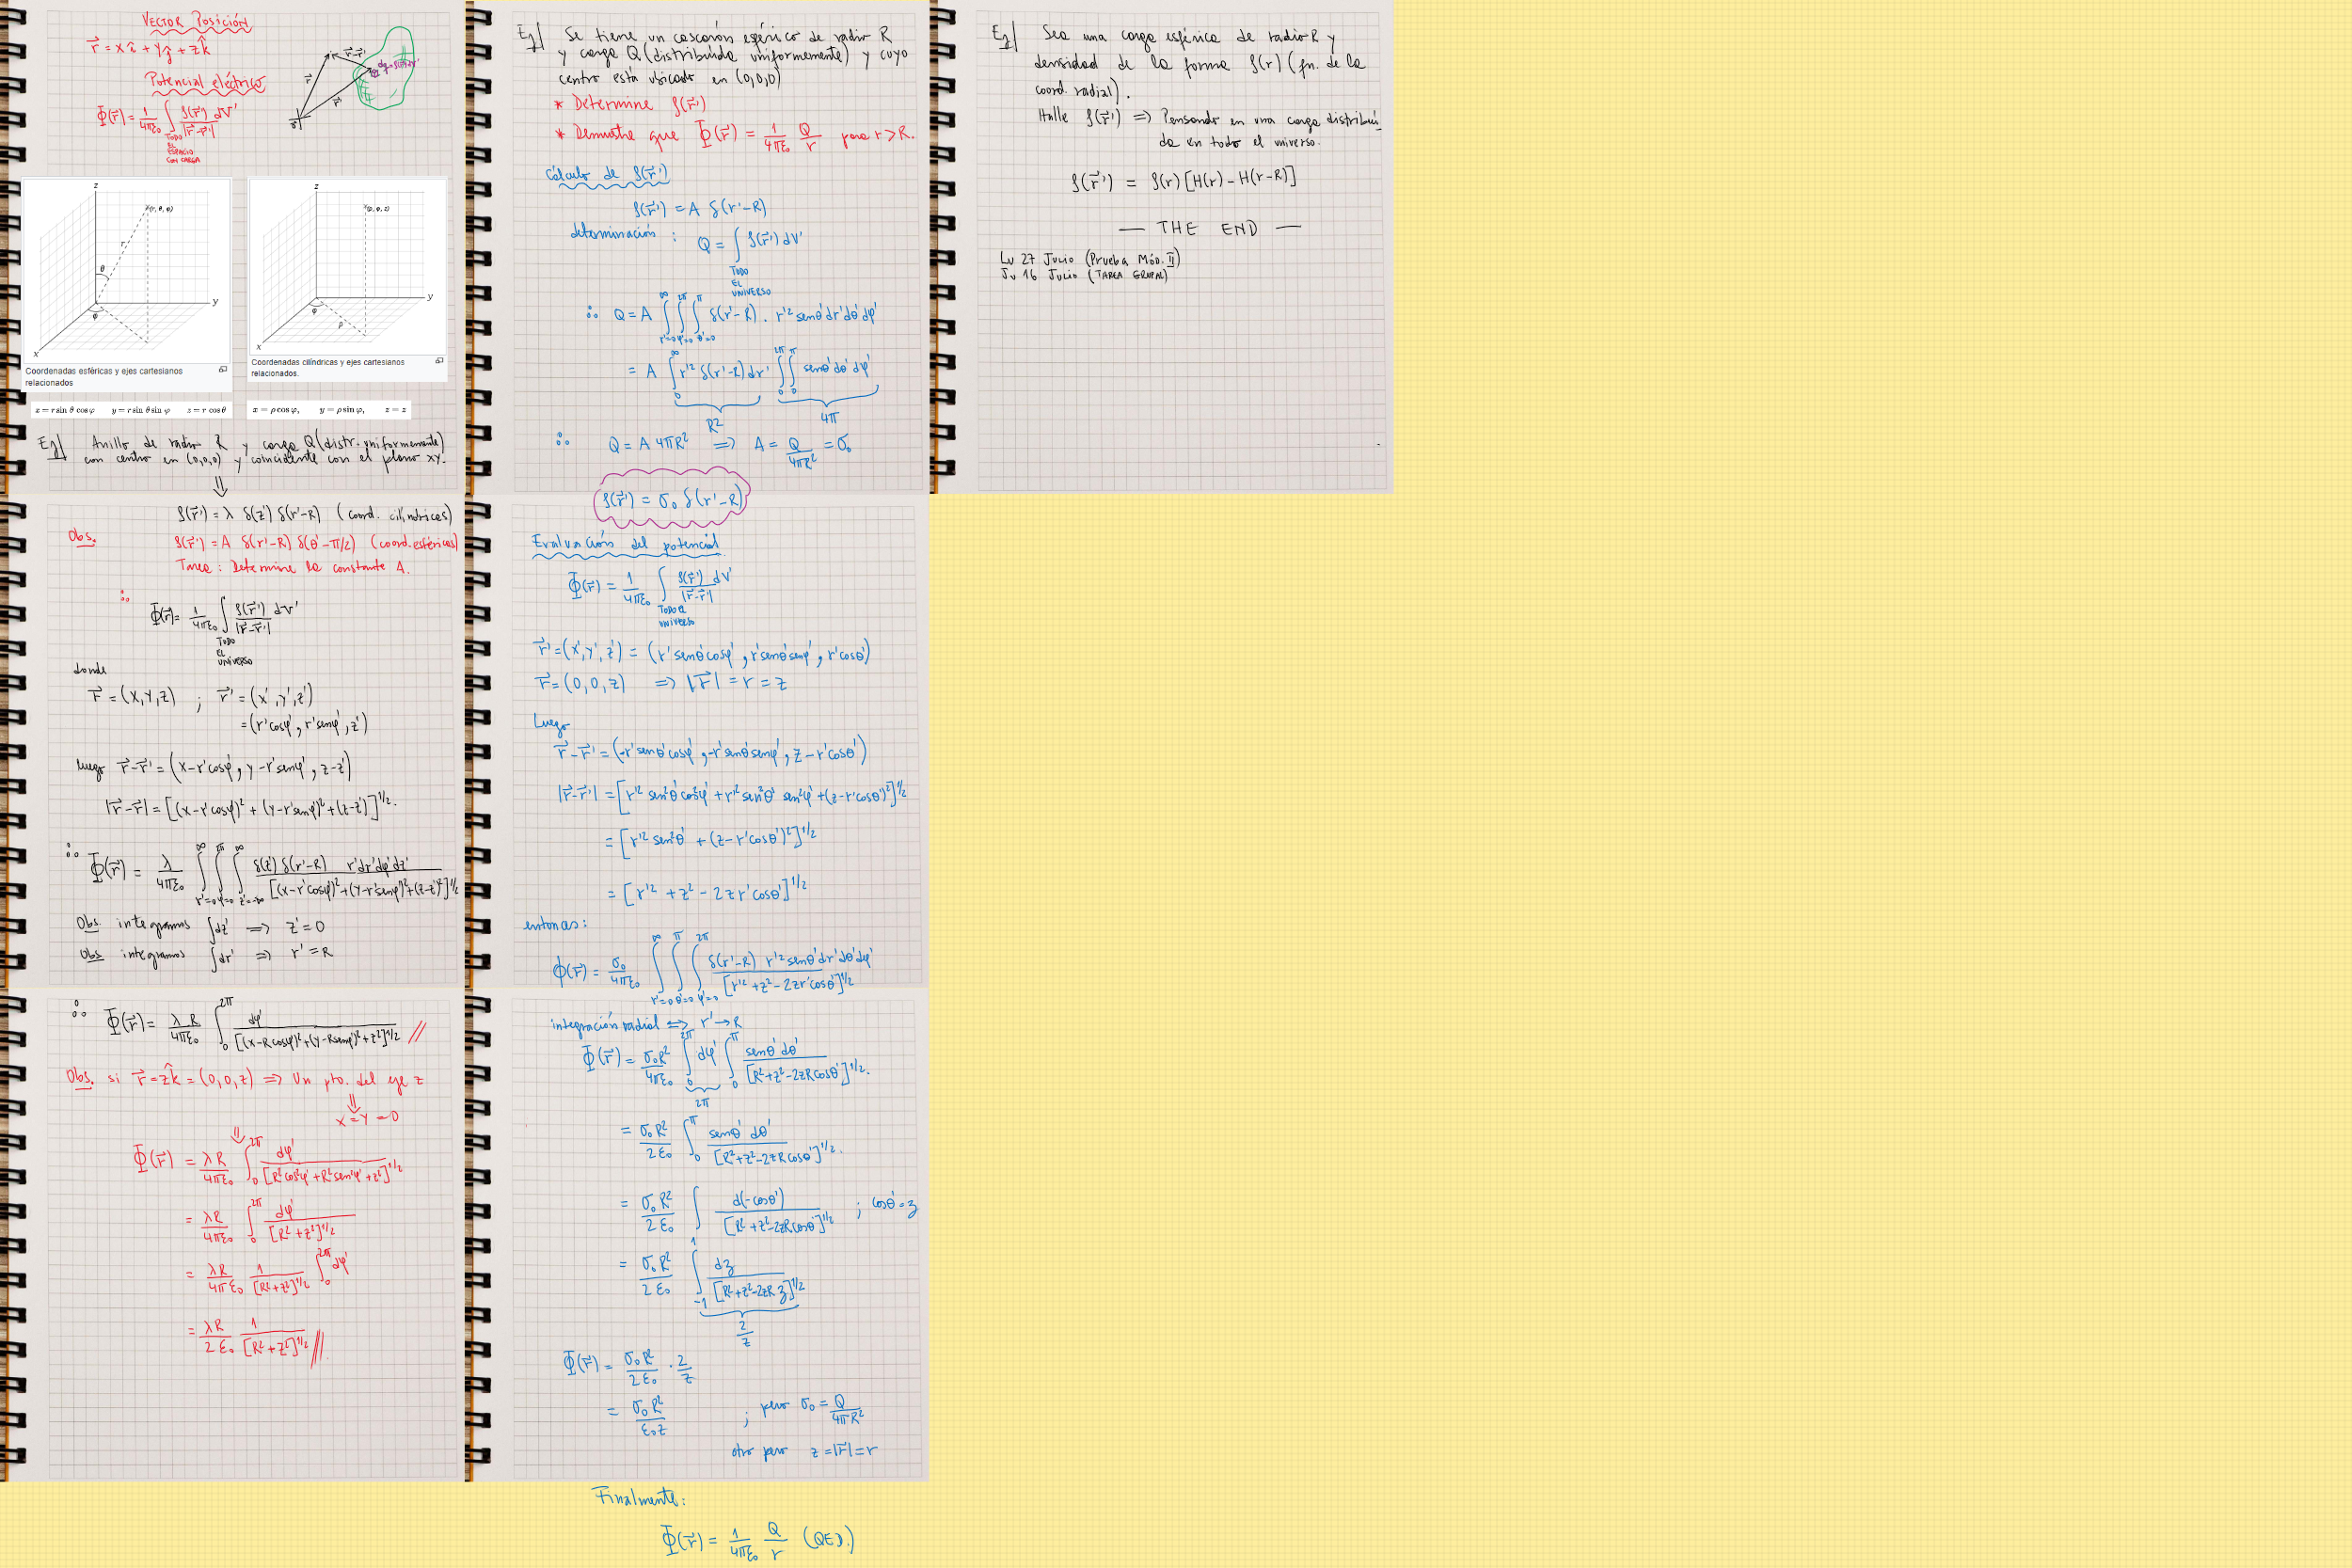 VECTOR POSICIÓN
r⃗ = x î + y ĵ + z k̂
Potencial eléctrico
Φ(r⃗) = 1/4πε₀ ∫ ρ(r⃗')/|r⃗-r⃗'| dV'
TODO
EL
ESPACIO
CON CARGA
r⃗-r⃗'
r⃗
r⃗'
dq=ρ(r⃗')dV'
z
(r, θ, φ)
r
θ
φ
y
x
Coordenadas esféricas y ejes cartesianos
relacionados
x = r sin θ cos φ y = r sin θ sin φ z = r cos θ
z
(ρ, φ, z)
φ
ρ
y
x
Coordenadas cilíndricas y ejes cartesianos
relacionados.
x = ρ cos φ, y = ρ sin φ, z = z
Ej| Anillo de radio R y carga Q (distr. uniformemente)
con centro en (0,0,0) y coincidente con el plano xy.
⇓
ρ(r⃗') = λ δ(z') δ(r'-R) (coord. cilíndricas)
Obs. ρ(r⃗') = A δ(r'-R) δ(θ'-π/2) (coord. esféricas)
Tarea: Determine la constante A.
∴ Φ(r⃗) = 1/4πε₀ ∫ ρ(r⃗')/|r⃗-r⃗'| dV'
TODO
EL
UNIVERSO
donde
r⃗ = (x,y,z) ; r⃗' = (x',y',z')
= (r'cosφ', r'senφ', z')
luego r⃗-r⃗' = (x-r'cosφ', y-r'senφ', z-z')
|r⃗-r⃗'| = [(x-r'cosφ')² + (y-r'senφ')² + (z-z')²]^1/2.
∴ Φ(r⃗) = λ/4πε₀ ∫_{r'=0}^{∞} ∫_{φ'=0}^{2π} ∫_{z'=-∞}^{∞} δ(z') δ(r'-R) r'dr'dφ'dz' / [(x-r'cosφ')²+(y-r'senφ')²+(z-z')²]^1/2
Obs. integramos ∫dz' ⇒ z'=0
Obs integramos ∫dr' ⇒ r'=R
∴ Φ(r⃗) = λR/4πε₀ ∫_0^{2π} dφ'/[(x-Rcosφ')²+(y-Rsenφ')²+z²]^1/2 //
Obs. si r⃗ = z k̂ = (0,0,z) ⇒ Un pto. del eje z
⇓
x=y=0
⇓
Φ(r⃗) = λR/4πε₀ ∫_0^{2π} dφ'/[R²cos²φ'+R²sen²φ'+z²]^1/2
= λR/4πε₀ ∫_0^{2π} dφ'/[R²+z²]^1/2
= λR/4πε₀ 1/[R²+z²]^1/2 ∫_0^{2π} dφ'
= λR/2ε₀ 1/[R²+z²]^1/2 //
Ej| Se tiene un cascarón esférico de radio R
y carga Q (distribuída uniformemente) y cuyo
centro está ubicado en (0,0,0)
* Determine ρ(r⃗')
* Demuestre que Φ(r⃗) = 1/4πε₀ Q/r para r>R.
Cálculo de ρ(r⃗')
ρ(r⃗') = A δ(r'-R)
determinación: Q = ∫ ρ(r⃗') dV'
TODO
EL
UNIVERSO
∴ Q = A ∫_{r'=0}^{∞} ∫_{φ'=0}^{2π} ∫_{θ'=0}^{π} δ(r'-R) · r'² senθ'dr'dθ'dφ'
= A ∫_0^∞ r'² δ(r'-R)dr' ∫_0^{2π} ∫_0^π senθ'dθ'dφ'
R² 4π
∴ Q = A 4πR² ⇒ A = Q/4πR² = σ₀
ρ(r⃗') = σ₀ δ(r'-R)
Evaluación del potencial
Φ(r⃗) = 1/4πε₀ ∫ ρ(r⃗') dV'/|r⃗-r⃗'|
TODO EL
UNIVERSO
r⃗' = (x',y',z') = (r'senθ'cosφ', r'senθ'senφ', r'cosθ')
r⃗ = (0,0,z) ⇒ |r⃗| = r = z
Luego
r⃗-r⃗' = (-r'senθ'cosφ', -r'senθ'senφ', z-r'cosθ')
|r⃗-r⃗'| = [r'² sen²θ'cos²φ' + r'² sen²θ' sen²φ' + (z-r'cosθ')²]^1/2
= [r'² sen²θ' + (z-r'cosθ')²]^1/2
= [r'² + z² - 2zr'cosθ']^1/2
entonces:
φ(r⃗) = σ₀/4πε₀ ∫_{r'=0}^{∞} ∫_{θ'=0}^{π} ∫_{φ'=0}^{2π} δ(r'-R) r'²senθ'dr'dθ'dφ'/[r'²+z²-2zr'cosθ']^1/2
integración radial ⇔ r'→R
Φ(r⃗) = σ₀R²/4πε₀ ∫_0^{2π} dφ' ∫_0^π senθ'dθ'/[R²+z²-2zRcosθ']^1/2.
2π
= σ₀R²/2ε₀ ∫_0^π senθ'dθ'/[R²+z²-2zRcosθ']^1/2.
= σ₀R²/2ε₀ ∫ d(-cosθ')/[R²+z²-2zRcosθ']^1/2 ; cosθ'=ʒ
= σ₀R²/2ε₀ ∫_{-1}^{1} dʒ/[R²+z²-2zRʒ]^1/2
2/z
Φ(r⃗) = σ₀R²/2ε₀ · 2/z
= σ₀R²/ε₀z ; pero σ₀ = Q/4πR²
otro pero z=|r⃗|=r
Finalmente:
Φ(r⃗) = 1/4πε₀ Q/r (QED.)
Ej| Sea una carga esférica de radio R y
densidad de la forma ρ(r) (fn. de la
coord. radial).
Halle ρ(r⃗') ⇒ Pensando en una carga distribuí-
da en todo el universo.
ρ(r⃗') = ρ(r)[H(r)-H(r-R)]
— THE END —
Lu 27 Julio (Prueba Mód. II)
Ju 16 Julio (TAREA GRUPAL)